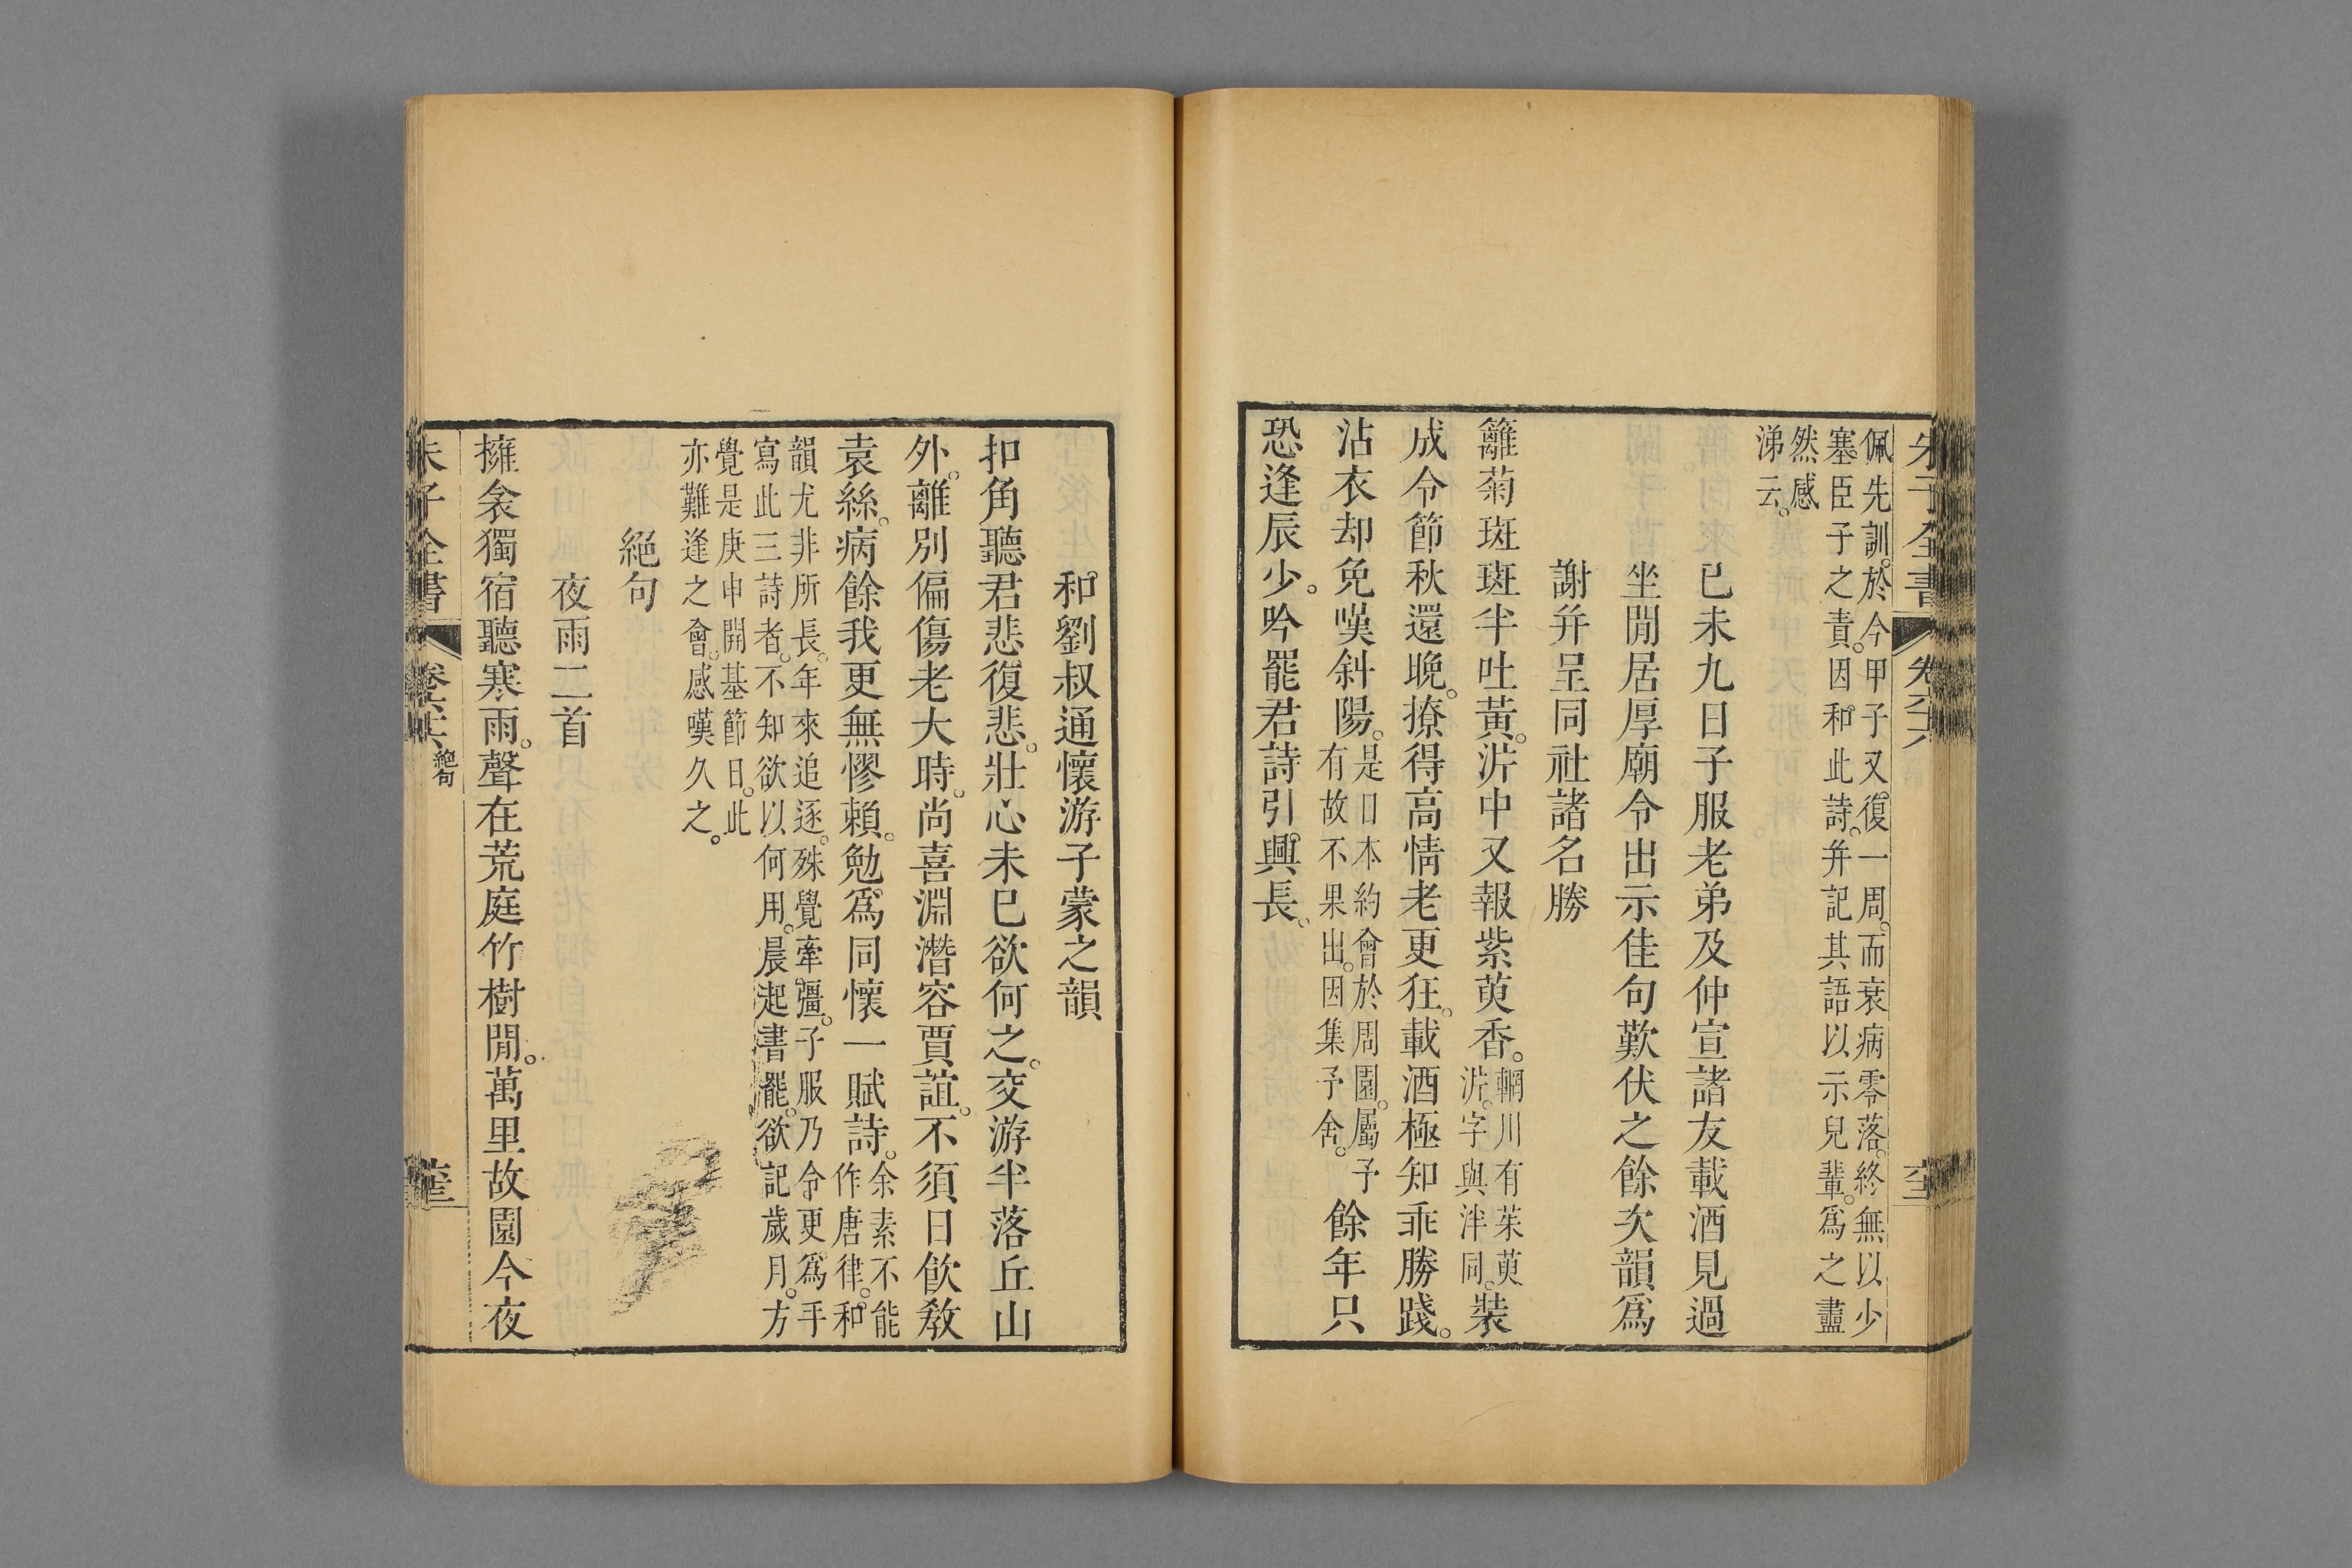 朱子全書 卷六六
佩先訓。於今甲子又復一周。而衰病零落。終無以少
塞臣子之責。因和此詩。并記其語以示兒輩。爲之盡
然感
涕云。
已未九日子服老弟及仲宣諸友載酒見過
坐閒居厚廟令出示佳句歎伏之餘次韻爲
謝并呈同社諸名勝
籬菊斑斑半吐黃。汸中又報紫萸香。輞川有茱萸
汸。字與泮同。裝
成令節秋還晚。撩得高情老更狂。載酒極知乖勝踐。
沾衣却免嘆斜陽。是日本約會於周園。屬予
有故不果出。因集予舍。餘年只
恐逢辰少。吟罷君詩引興長。
和劉叔通懷游子蒙之韻
扣角聽君悲復悲。壯心未已欲何之。交游半落丘山
外。離別偏傷老大時。尚喜淵潛容賈誼。不須日飮教
袁絲。病餘我更無憀賴。勉爲同懷一賦詩。余素不能
作唐律。和
韻尤非所長。年來追逐。殊覺牽彊。子服乃令更爲手
寫此三詩者。不知欲以何用。晨起書罷。欲記歲月。方
覺是庚申開基節日。此
亦難逢之會。感嘆久之。
絕句
夜雨二首
擁衾獨宿聽寒雨。聲在荒庭竹樹閒。萬里故園今夜
朱子全書 卷六六 絕句